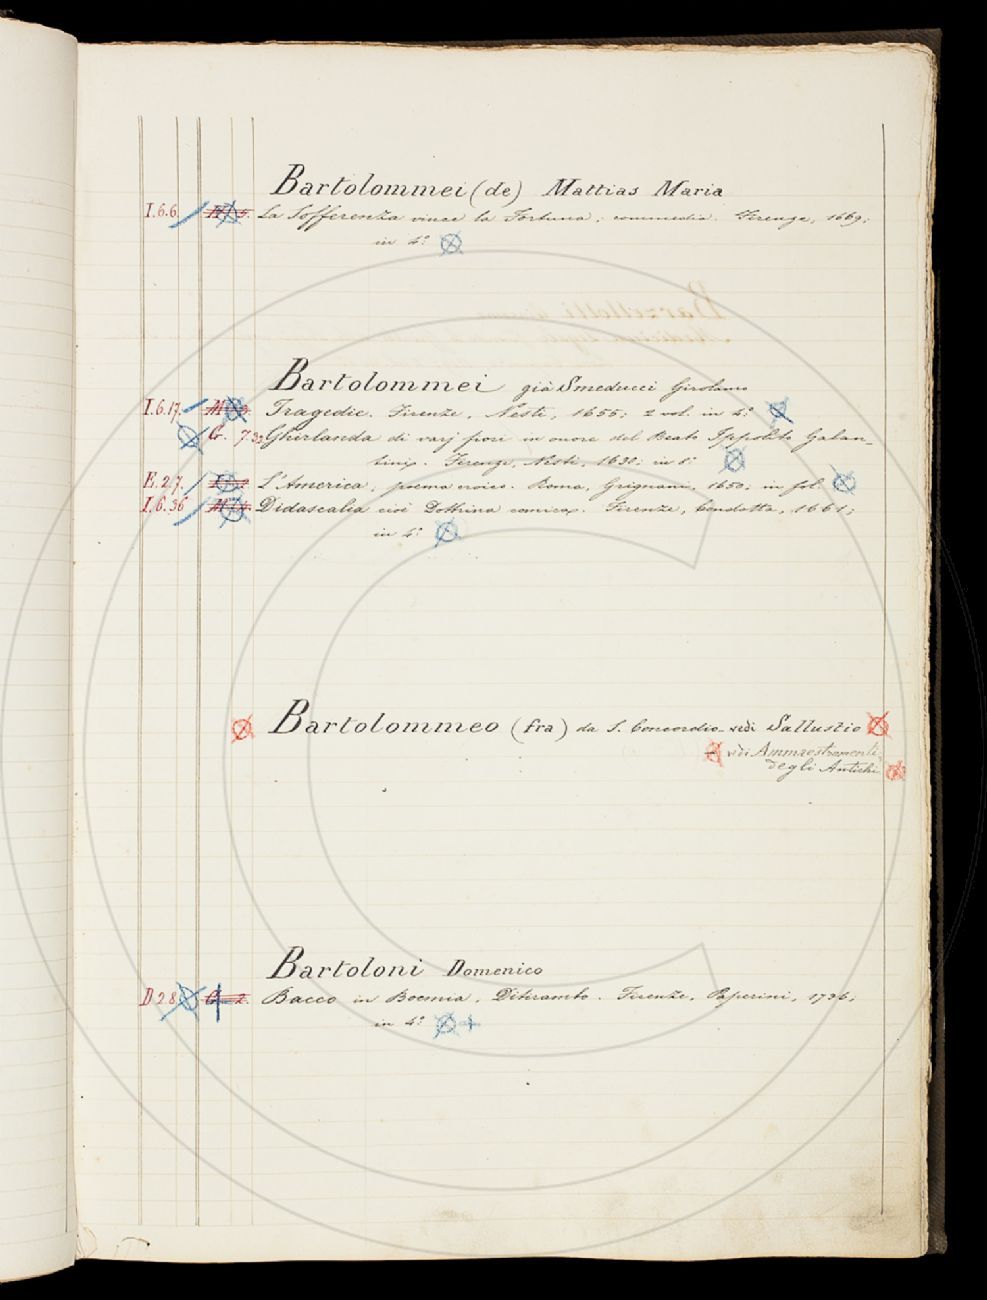 Bartolommei (de) Mattias Maria
I.6.6. La Sofferenza vince la Fortuna, commedia. Firenze, 1669;
in 4.°
Bartolommei già Smeducci Girolamo
I.6.17. Tragedie. Firenze, Nesti, 1655; 2 vol. in 4.°
G. 7.32 Ghirlanda di varj fiori in onore del Beato Ippolito Galan-
tini. Firenze, Nesti, 1630; in 8.°
E.2.7. L'America, poema eroico. Roma, Grignani, 1650; in fol.
I.6.36 Didascalia cioè Dottrina comica. Firenze, 1661;
in 4.°
Bartolommeo (fra) da S. Concordio vedi Sallustio
vedi Ammaestramenti
degli Antichi
Bartoloni Domenico
D.2.8. Bacco in Boemia, Ditirambo. Firenze, Paperini, 1736;
in 4.°